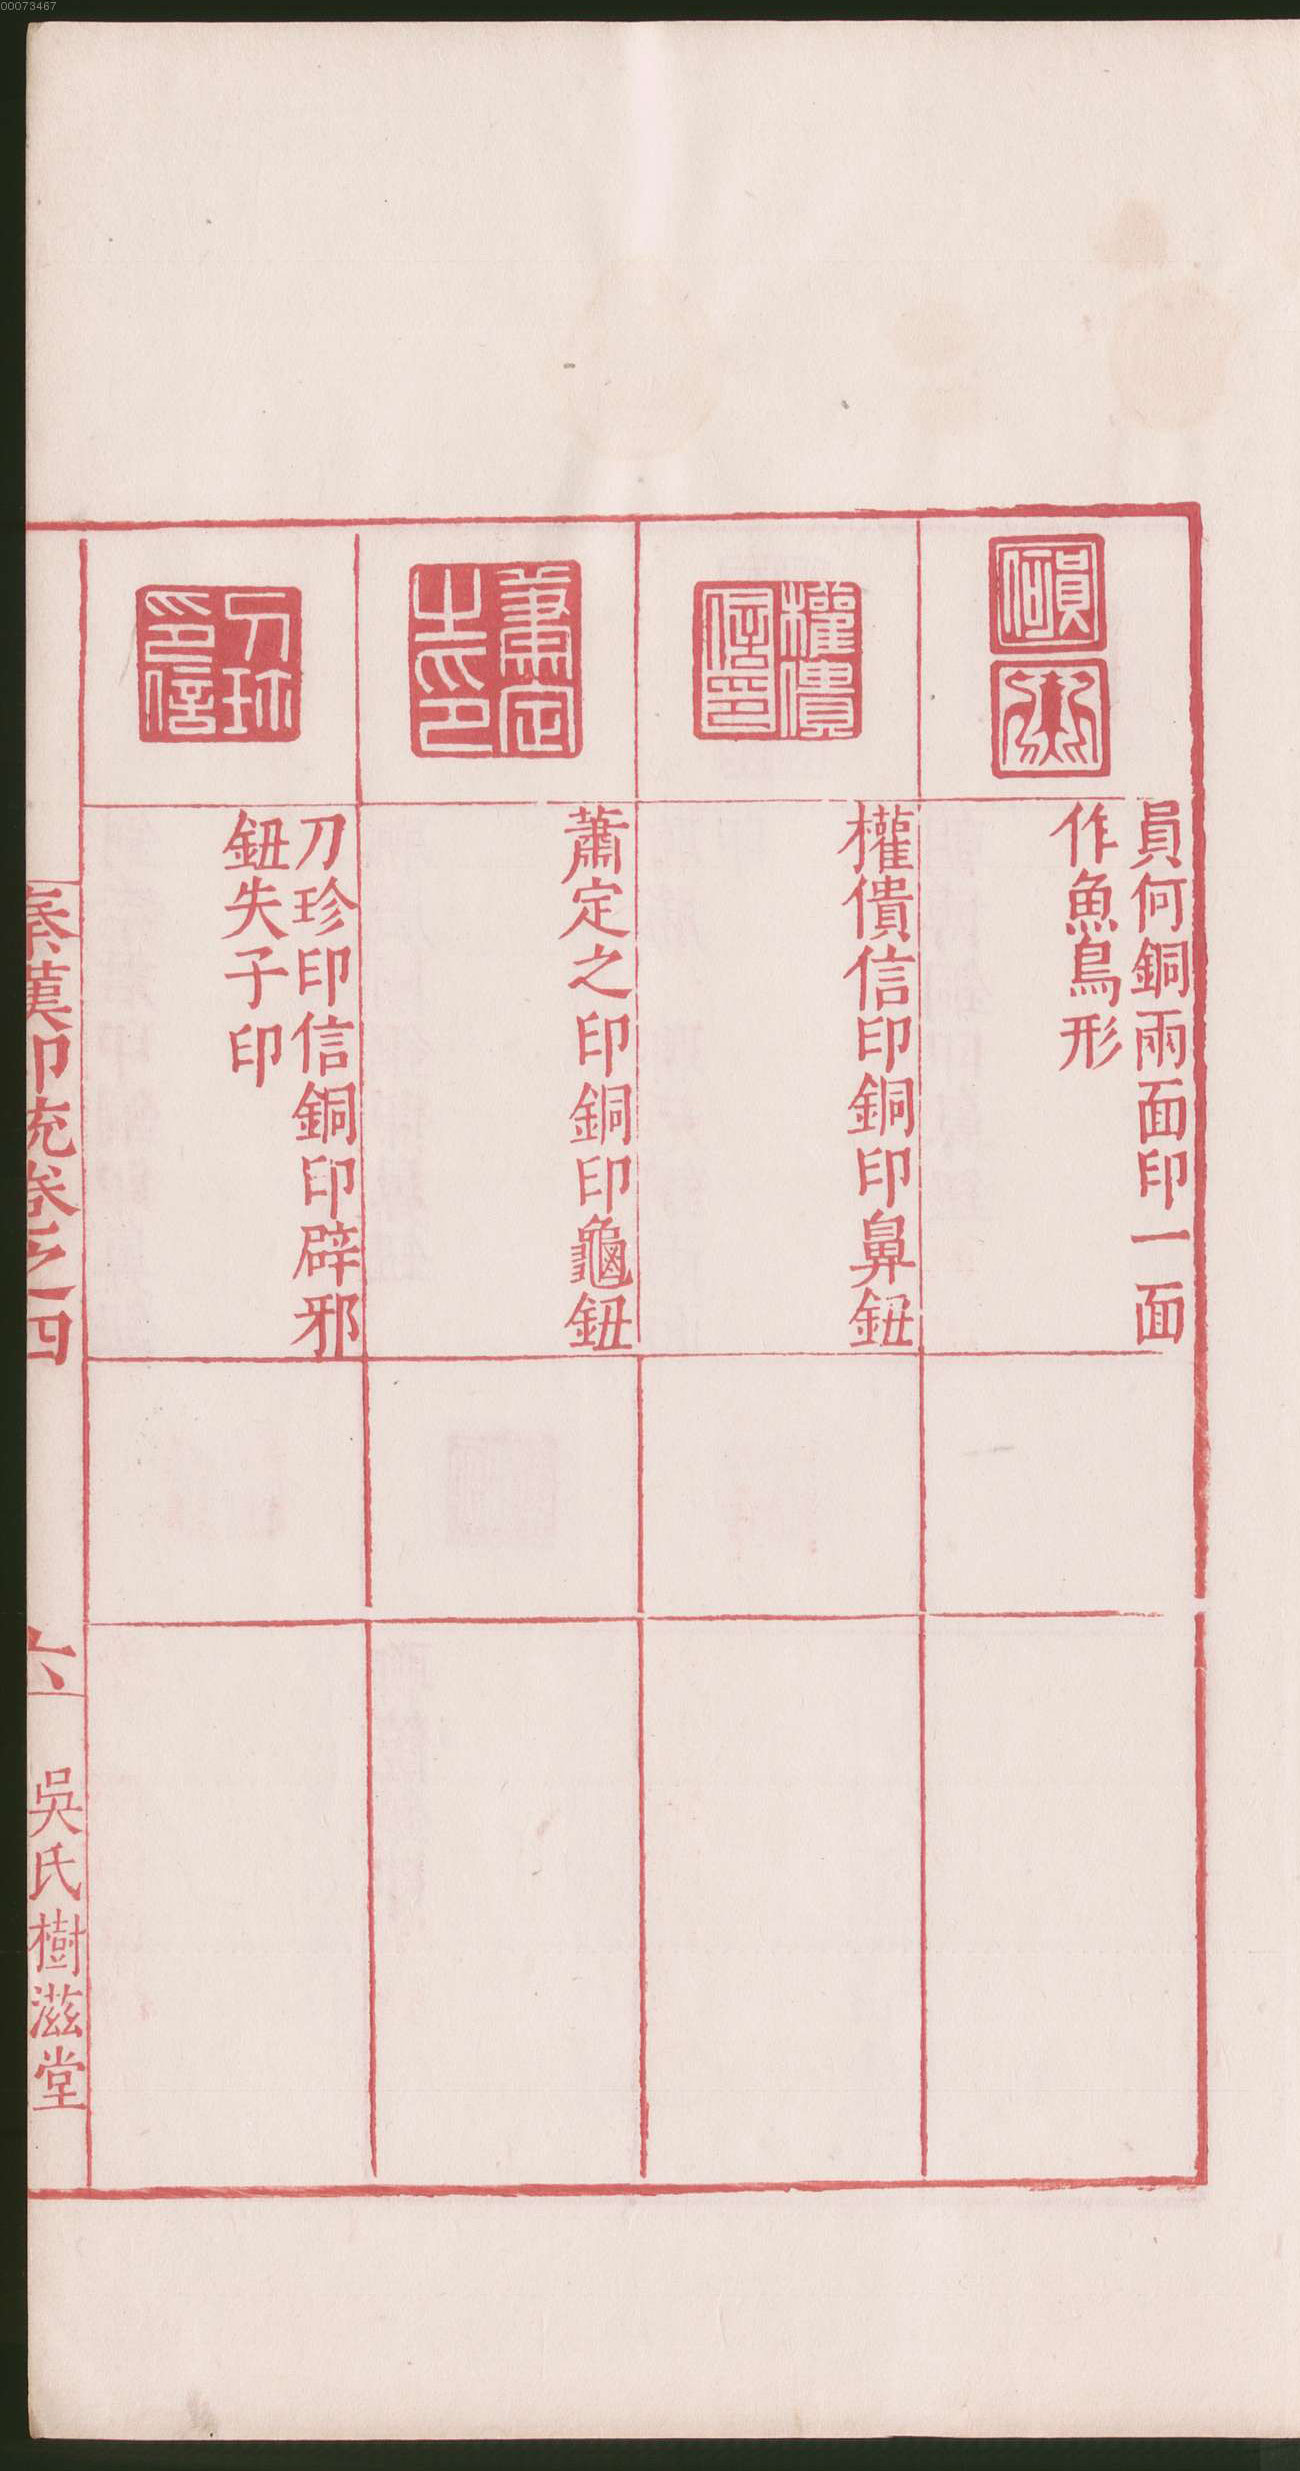 00073467
員何
員何銅兩面印一面
作魚鳥形
權僓
信印
權僓信印銅印鼻鈕
蕭定
之印
蕭定之印銅印龜鈕
刀珍
印信
刀珍印信銅印辟邪
鈕失子印
秦漢印統卷之四
六
吳氏樹滋堂